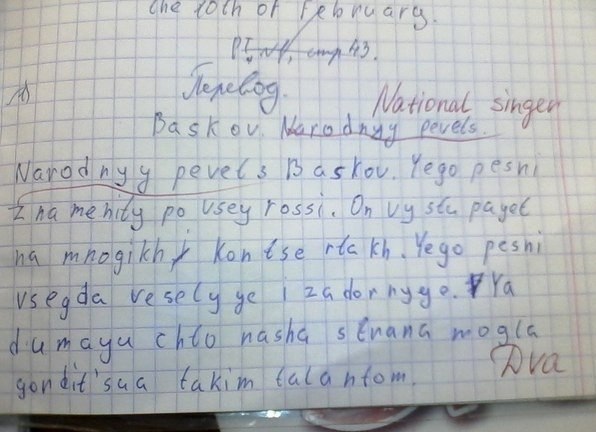 the 10th of February.
P.I, №1, стр 43.
Перевод.
National singer
Baskov. Narodnyy pevets.
Narodnyy pevets Baskov. Yego pesni
znamenity po vsey rossi. On vystupayet
na mnogikh kontsertakh. Yego pesni
vsegda veselyye i zadornyye. Ya
dumayu chto nasha strana mogla
gordit'sua takim talantom.
Dva